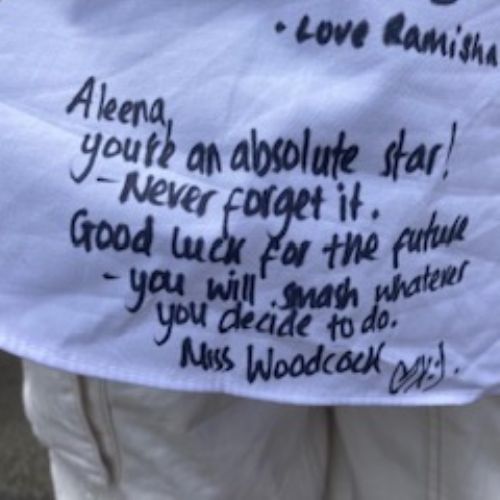 • Love Ramisha
Aleena,
you're an absolute star!
- Never forget it.
Good luck for the future
- you will smash whatever
you decide to do.
Miss Woodcock x:).